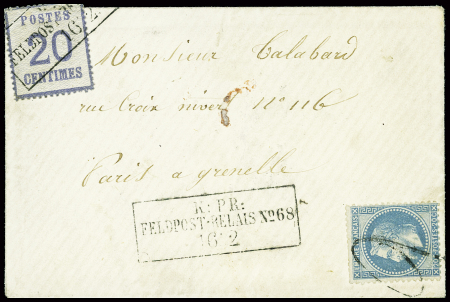 POSTES
20
CENTIMES
FELDPOST
16 2
Monsieur Talabard
rue Croix nivert N° 116
Paris a grenelle
K: PR:
FELDPOST-RELAIS No 68
16 2
FRANÇAIS